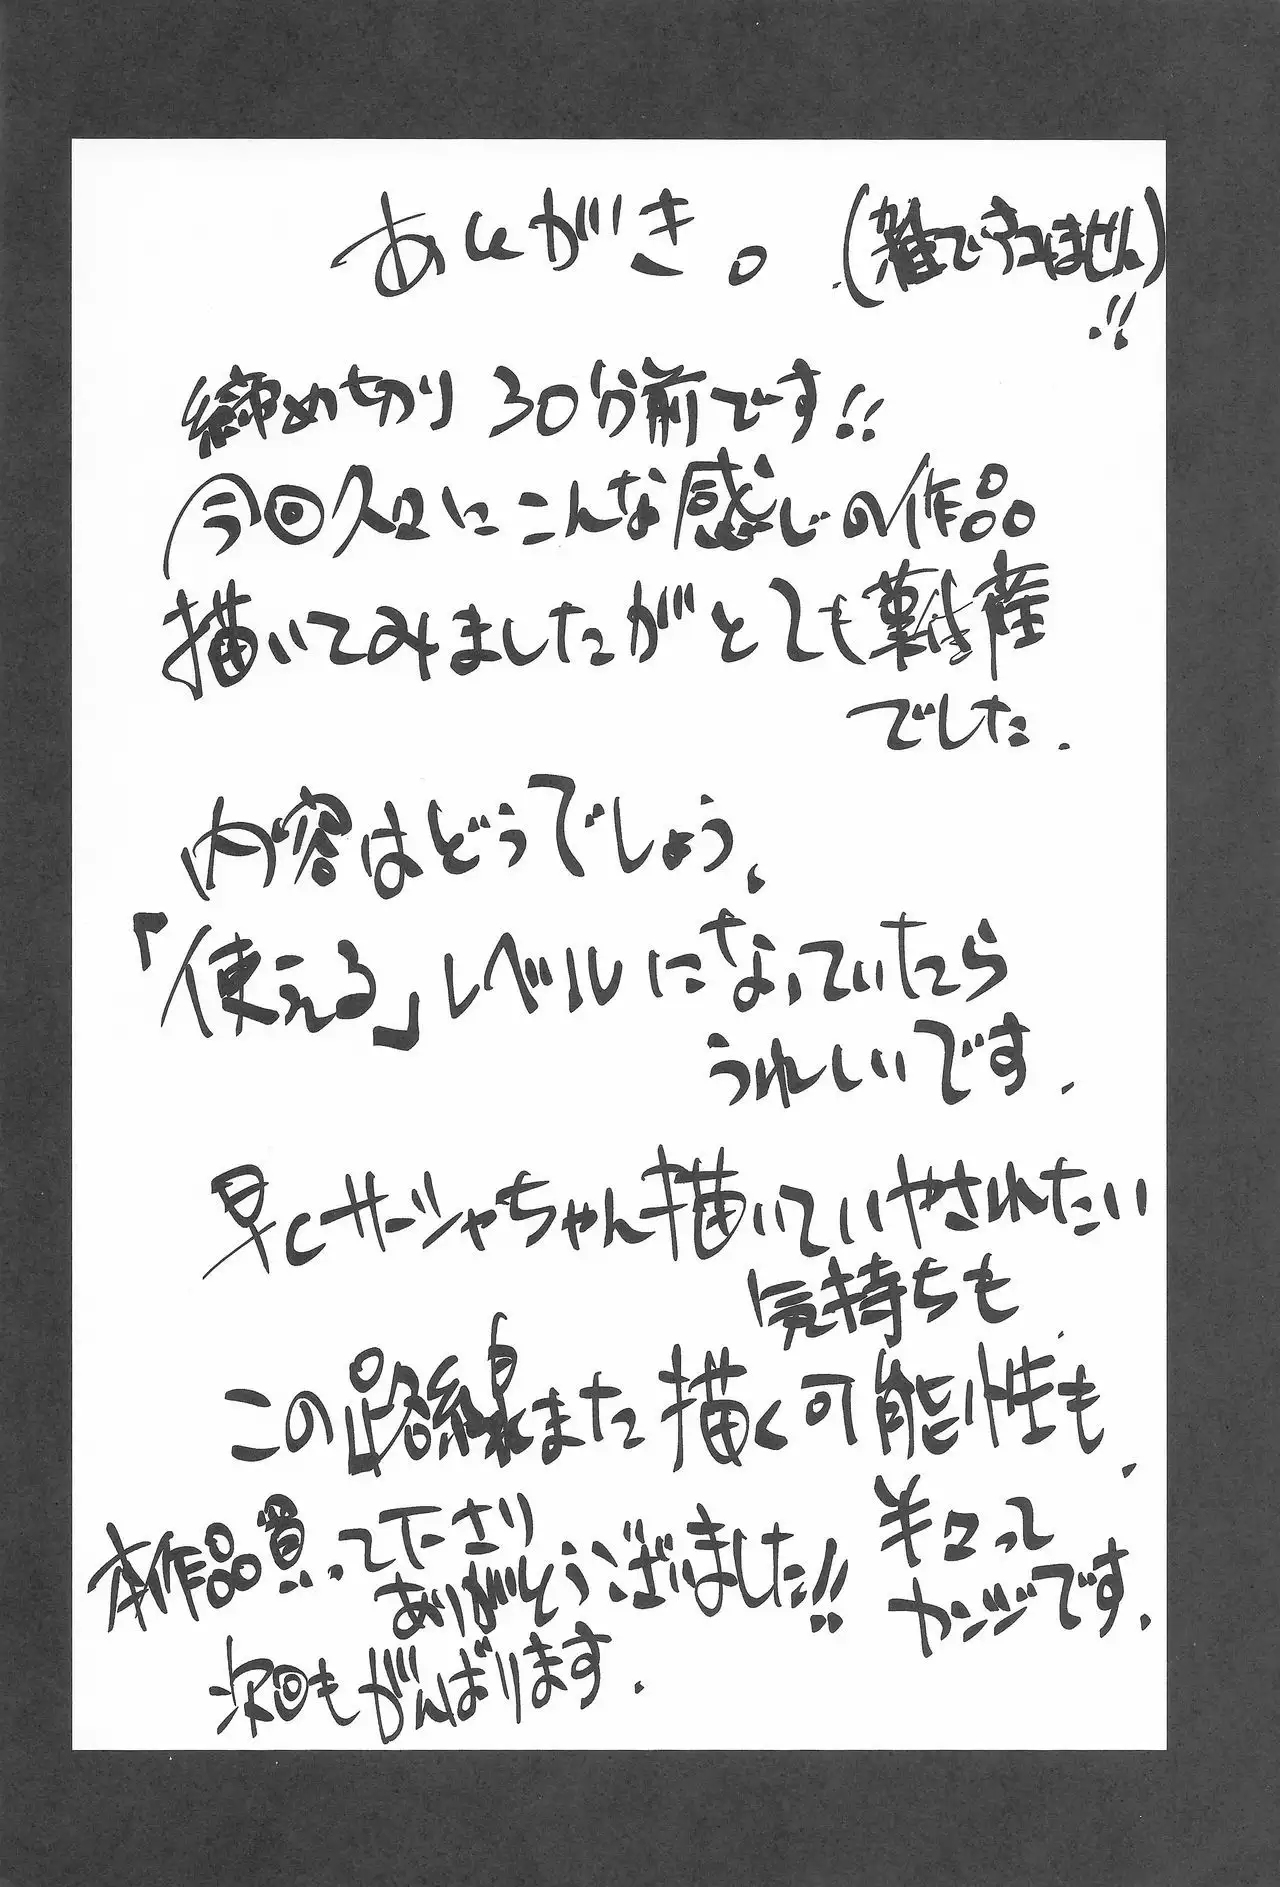 あとがき。(雑ですみません)!!
締め切り30分前です!!
今回久々にこんな感じの作品
描いてみましたがとても難産
でした.
内容はどうでしょう.
「使える」レベルになっていたら
うれしいです.
早くサーシャちゃん描いていやされたい
気持ちも.
この路線また描く可能性も.
半々って
カンジです.
本作品買って下さり
ありがとうございました!!
次回もがんばります.